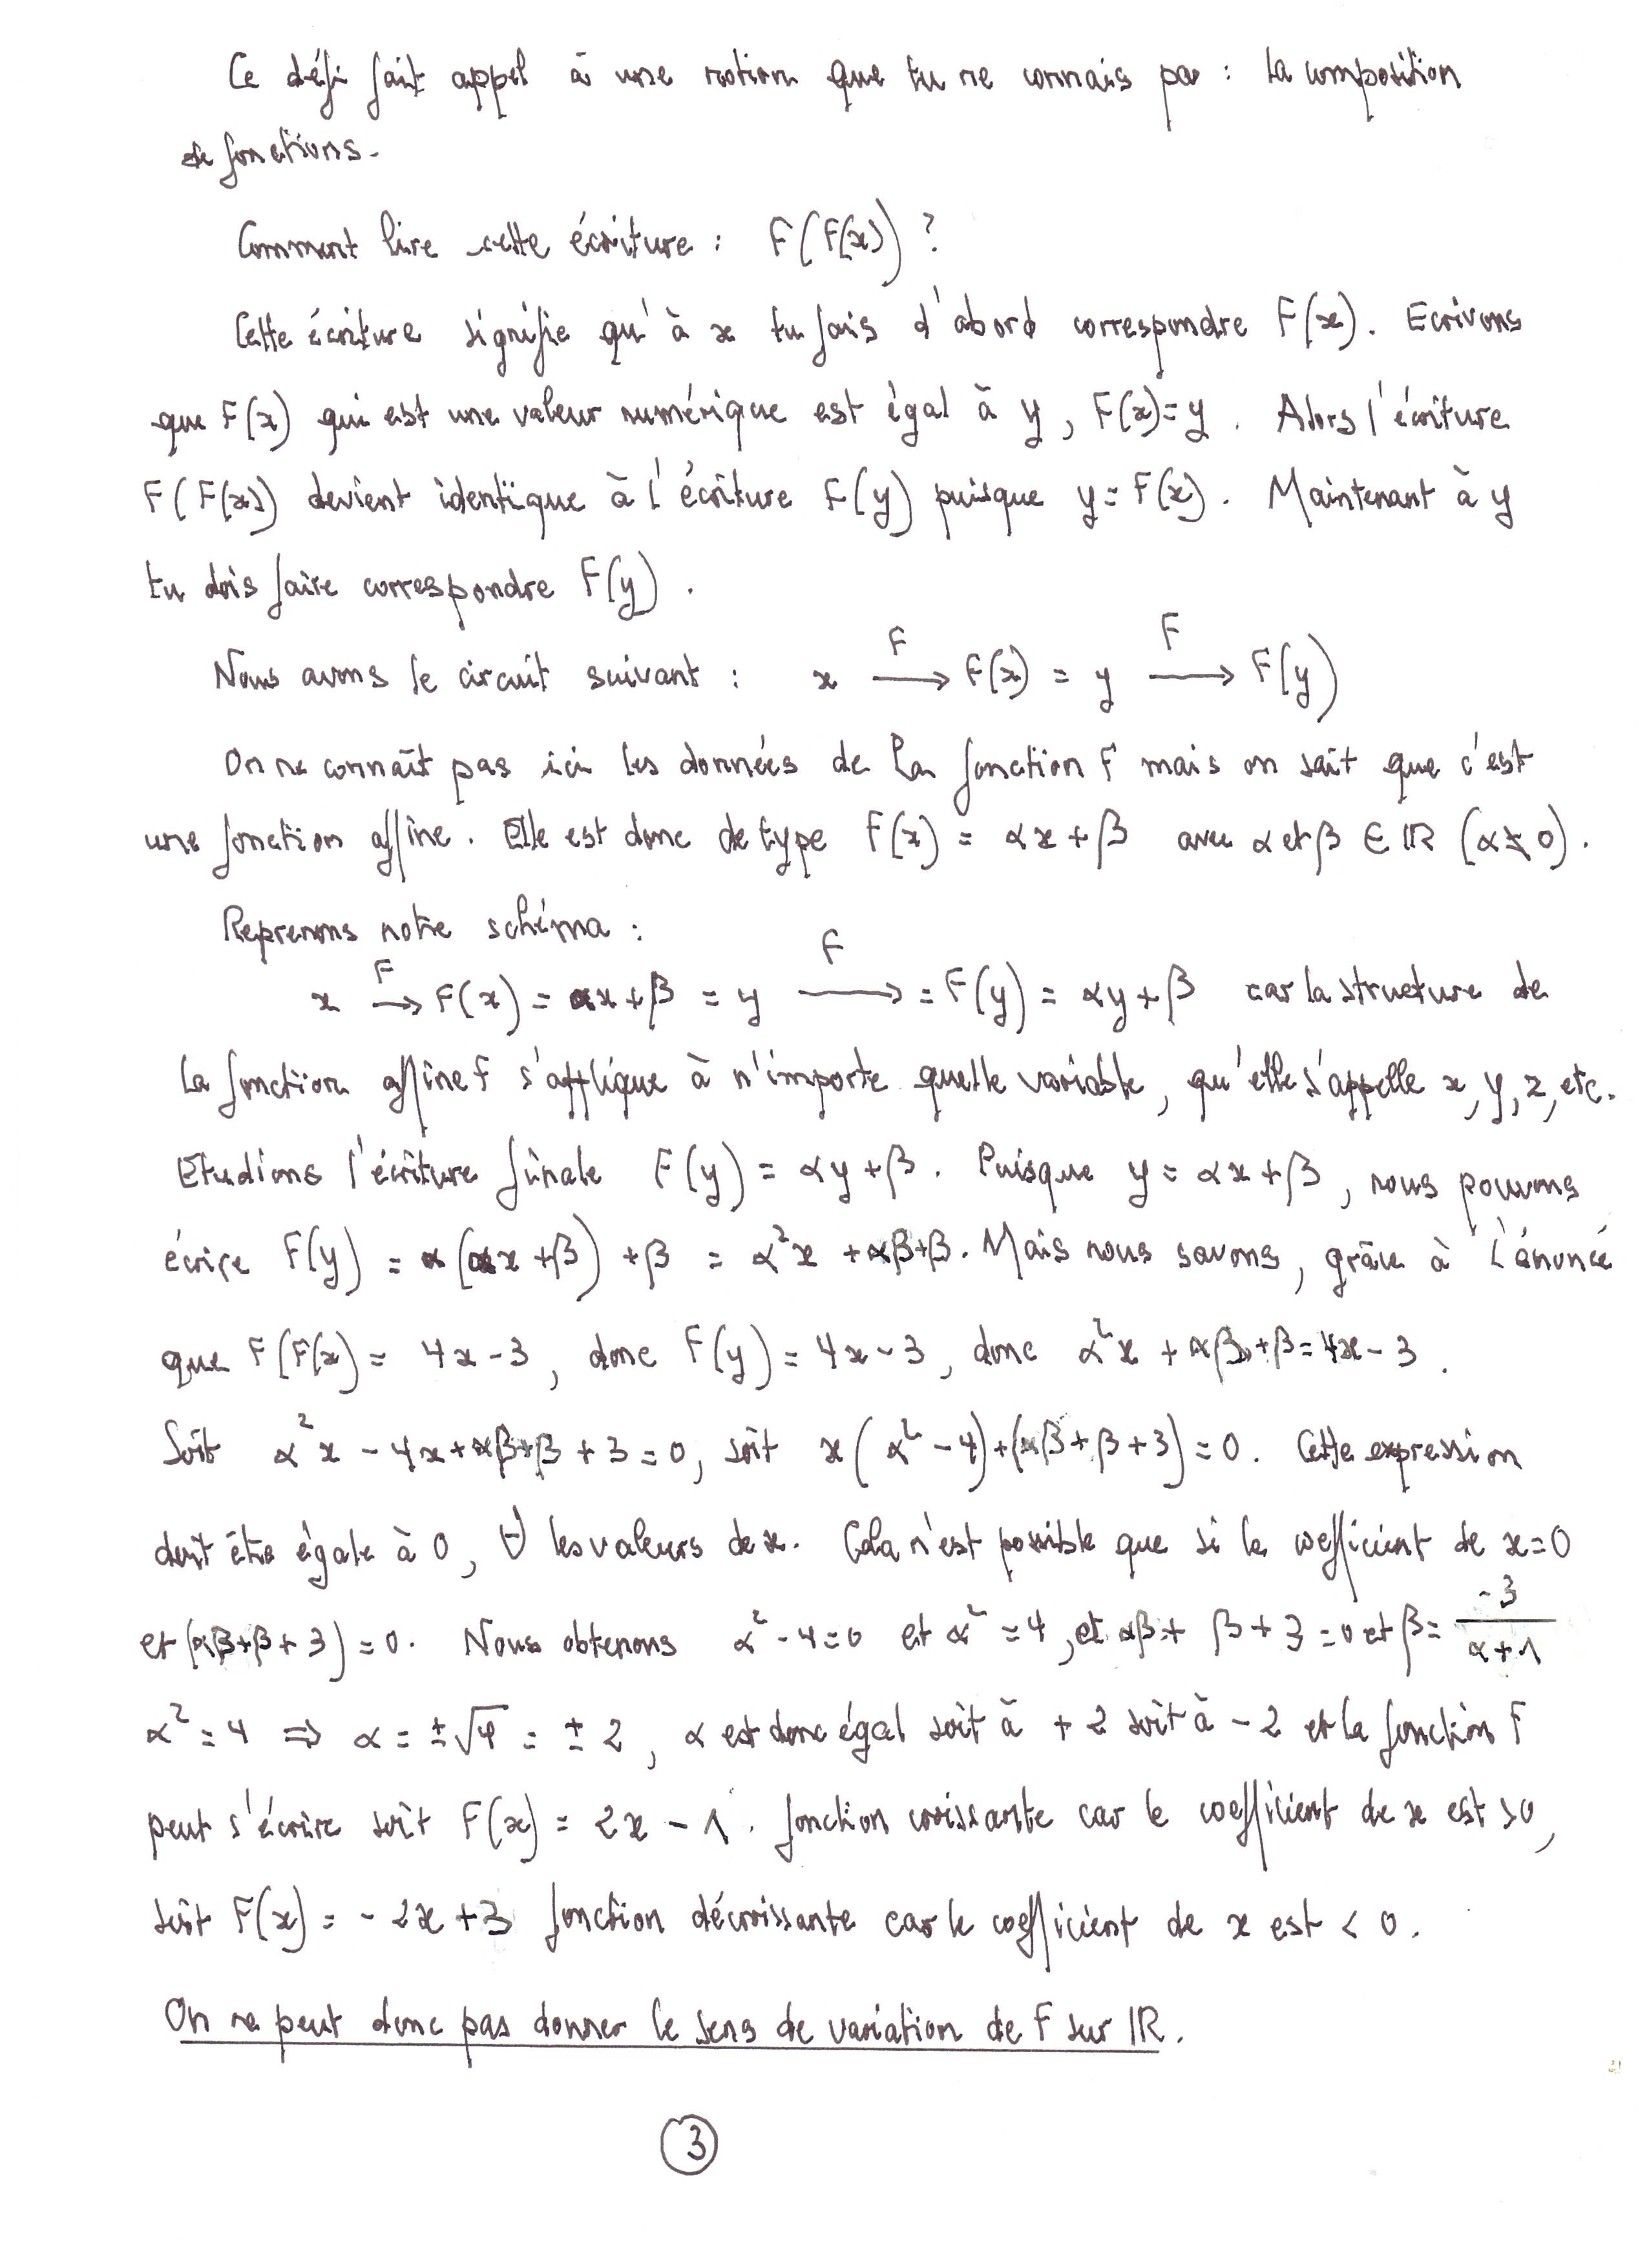 Ce défi fait appel à une notion que tu ne connais pas : la composition
de fonctions.
Comment lire cette écriture : F(F(x)) ?
Cette écriture signifie qu'à x tu fais d'abord correspondre F(x). Ecrivons
que F(x) qui est une valeur numérique est égal à y, F(x)=y. Alors l'écriture
F(F(x)) devient identique à l'écriture F(y) puisque y=F(x). Maintenant à y
tu dois faire correspondre F(y).
Nous avons le circuit suivant : x —F→ F(x) = y —F→ F(y)
On ne connaît pas ici les données de la fonction F mais on sait que c'est
une fonction affine. Elle est donc de type F(x) = αx+β avec α et β ∈ ℝ (α≠0).
Reprenons notre schéma :
x —F→ F(x) = αx+β = y —F→ = F(y) = αy+β car la structure de
la fonction affine F s'applique à n'importe quelle variable, qu'elle s'appelle x, y, z, etc.
Etudions l'écriture finale F(y) = αy+β. Puisque y = αx+β, nous pouvons
écrire F(y) = α(αx+β)+β = α²x+αβ+β. Mais nous savons, grâce à l'énoncé
que F(F(x) = 4x-3, donc F(y) = 4x-3, donc α²x+αβ+β=4x-3.
Soit α²x-4x+αβ+β+3=0, soit x(α²-4)+(αβ+β+3)=0. Cette expression
doit être égale à 0, ∀ les valeurs de x. Cela n'est possible que si le coefficient de x=0
et (αβ+β+3)=0. Nous obtenons α²-4=0 et α²=4, et αβ+β+3=0 et β=-3/(α+1)
α²=4 ⇒ α=±√4=±2, α est donc égal soit à +2 soit à -2 et la fonction F
peut s'écrire soit F(x) = 2x-1. fonction croissante car le coefficient de x est >0,
soit F(x) = -2x+3 fonction décroissante car le coefficient de x est < 0.
On ne peut donc pas donner le sens de variation de F sur ℝ.
3